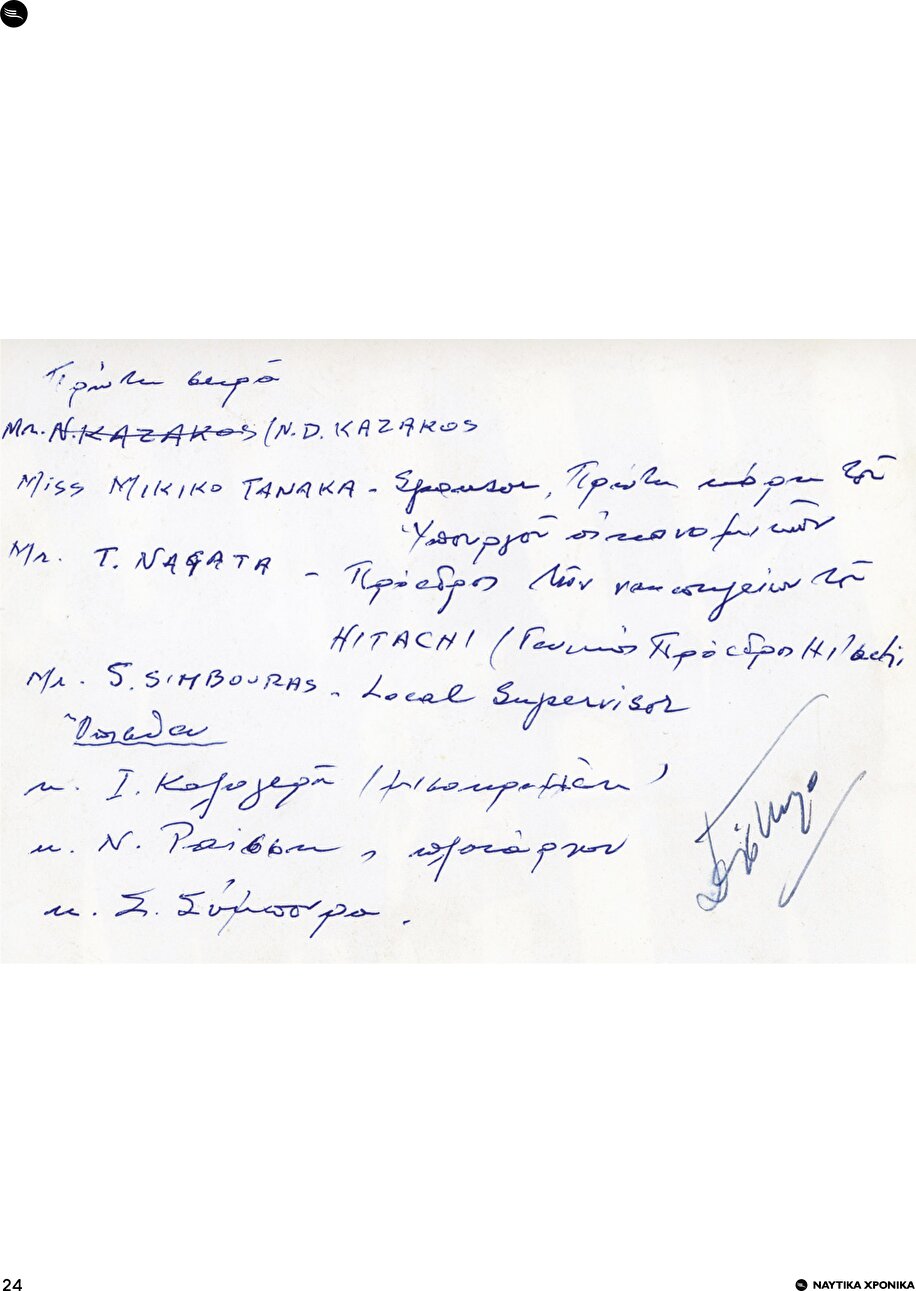 Πρώτη σειρά
Mr. N. KAZAKOS / N. D. KAZAKOS
MISS MIKIKO TANAKA - Sponsor, Πρώτη κόρη τοῦ
Ὑπουργοῦ οἰκονομικῶν
Mr. T. NAGATA - Πρόεδρος τῶν ναυπηγείων τοῦ
HITACHI (Γενικός Πρόεδρος Hitachi
Mr. S. SIMBOURAS - Local Supervisor
Ὄπισθεν
κ. Ι. Καλογερᾶ
κ. Ν. Ραΐση, πλοιάρχου
κ. Σ. Σύμπουρα.
24
ΝΑΥΤΙΚΑ ΧΡΟΝΙΚΑ